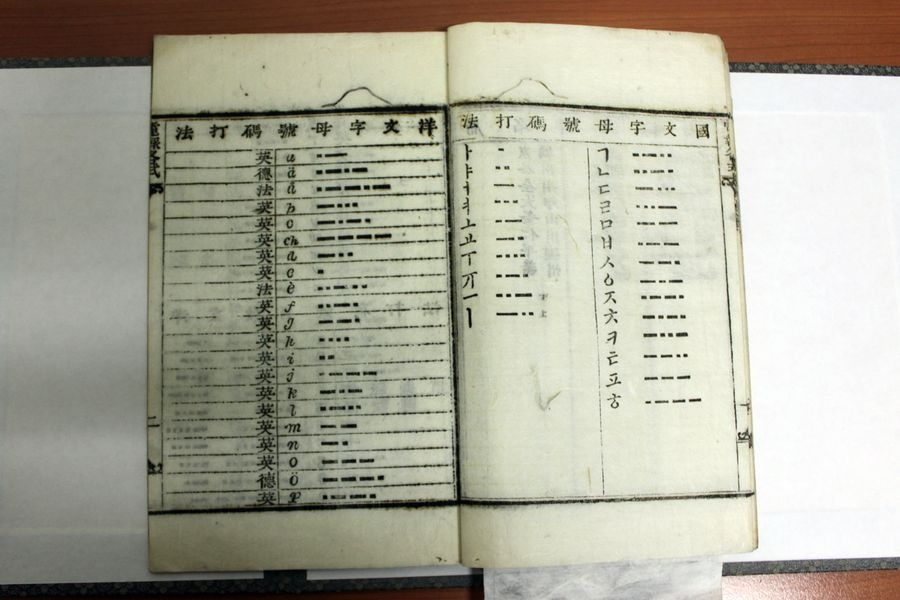 國文字母號碼打法
ㄱ
ㄴ
ㄷ
ㄹ
ㅁ
ㅂ
ㅅ
ㆁ
ㅈ
ㅊ
ㅋ
ㅌ
ㅍ
ㅎ
ㅏ
ㅑ
ㅓ
ㅕ
ㅗ
ㅛ
ㅜ
ㅠ
ㅡ
ㅣ
洋文字母號碼打法
英 a
德 ä
法 á
英 b
英 c
英 ch
英 d
英 e
法 é
英 f
英 g
英 h
英 i
英 j
英 k
英 l
英 m
英 n
英 o
德 ö
英 p